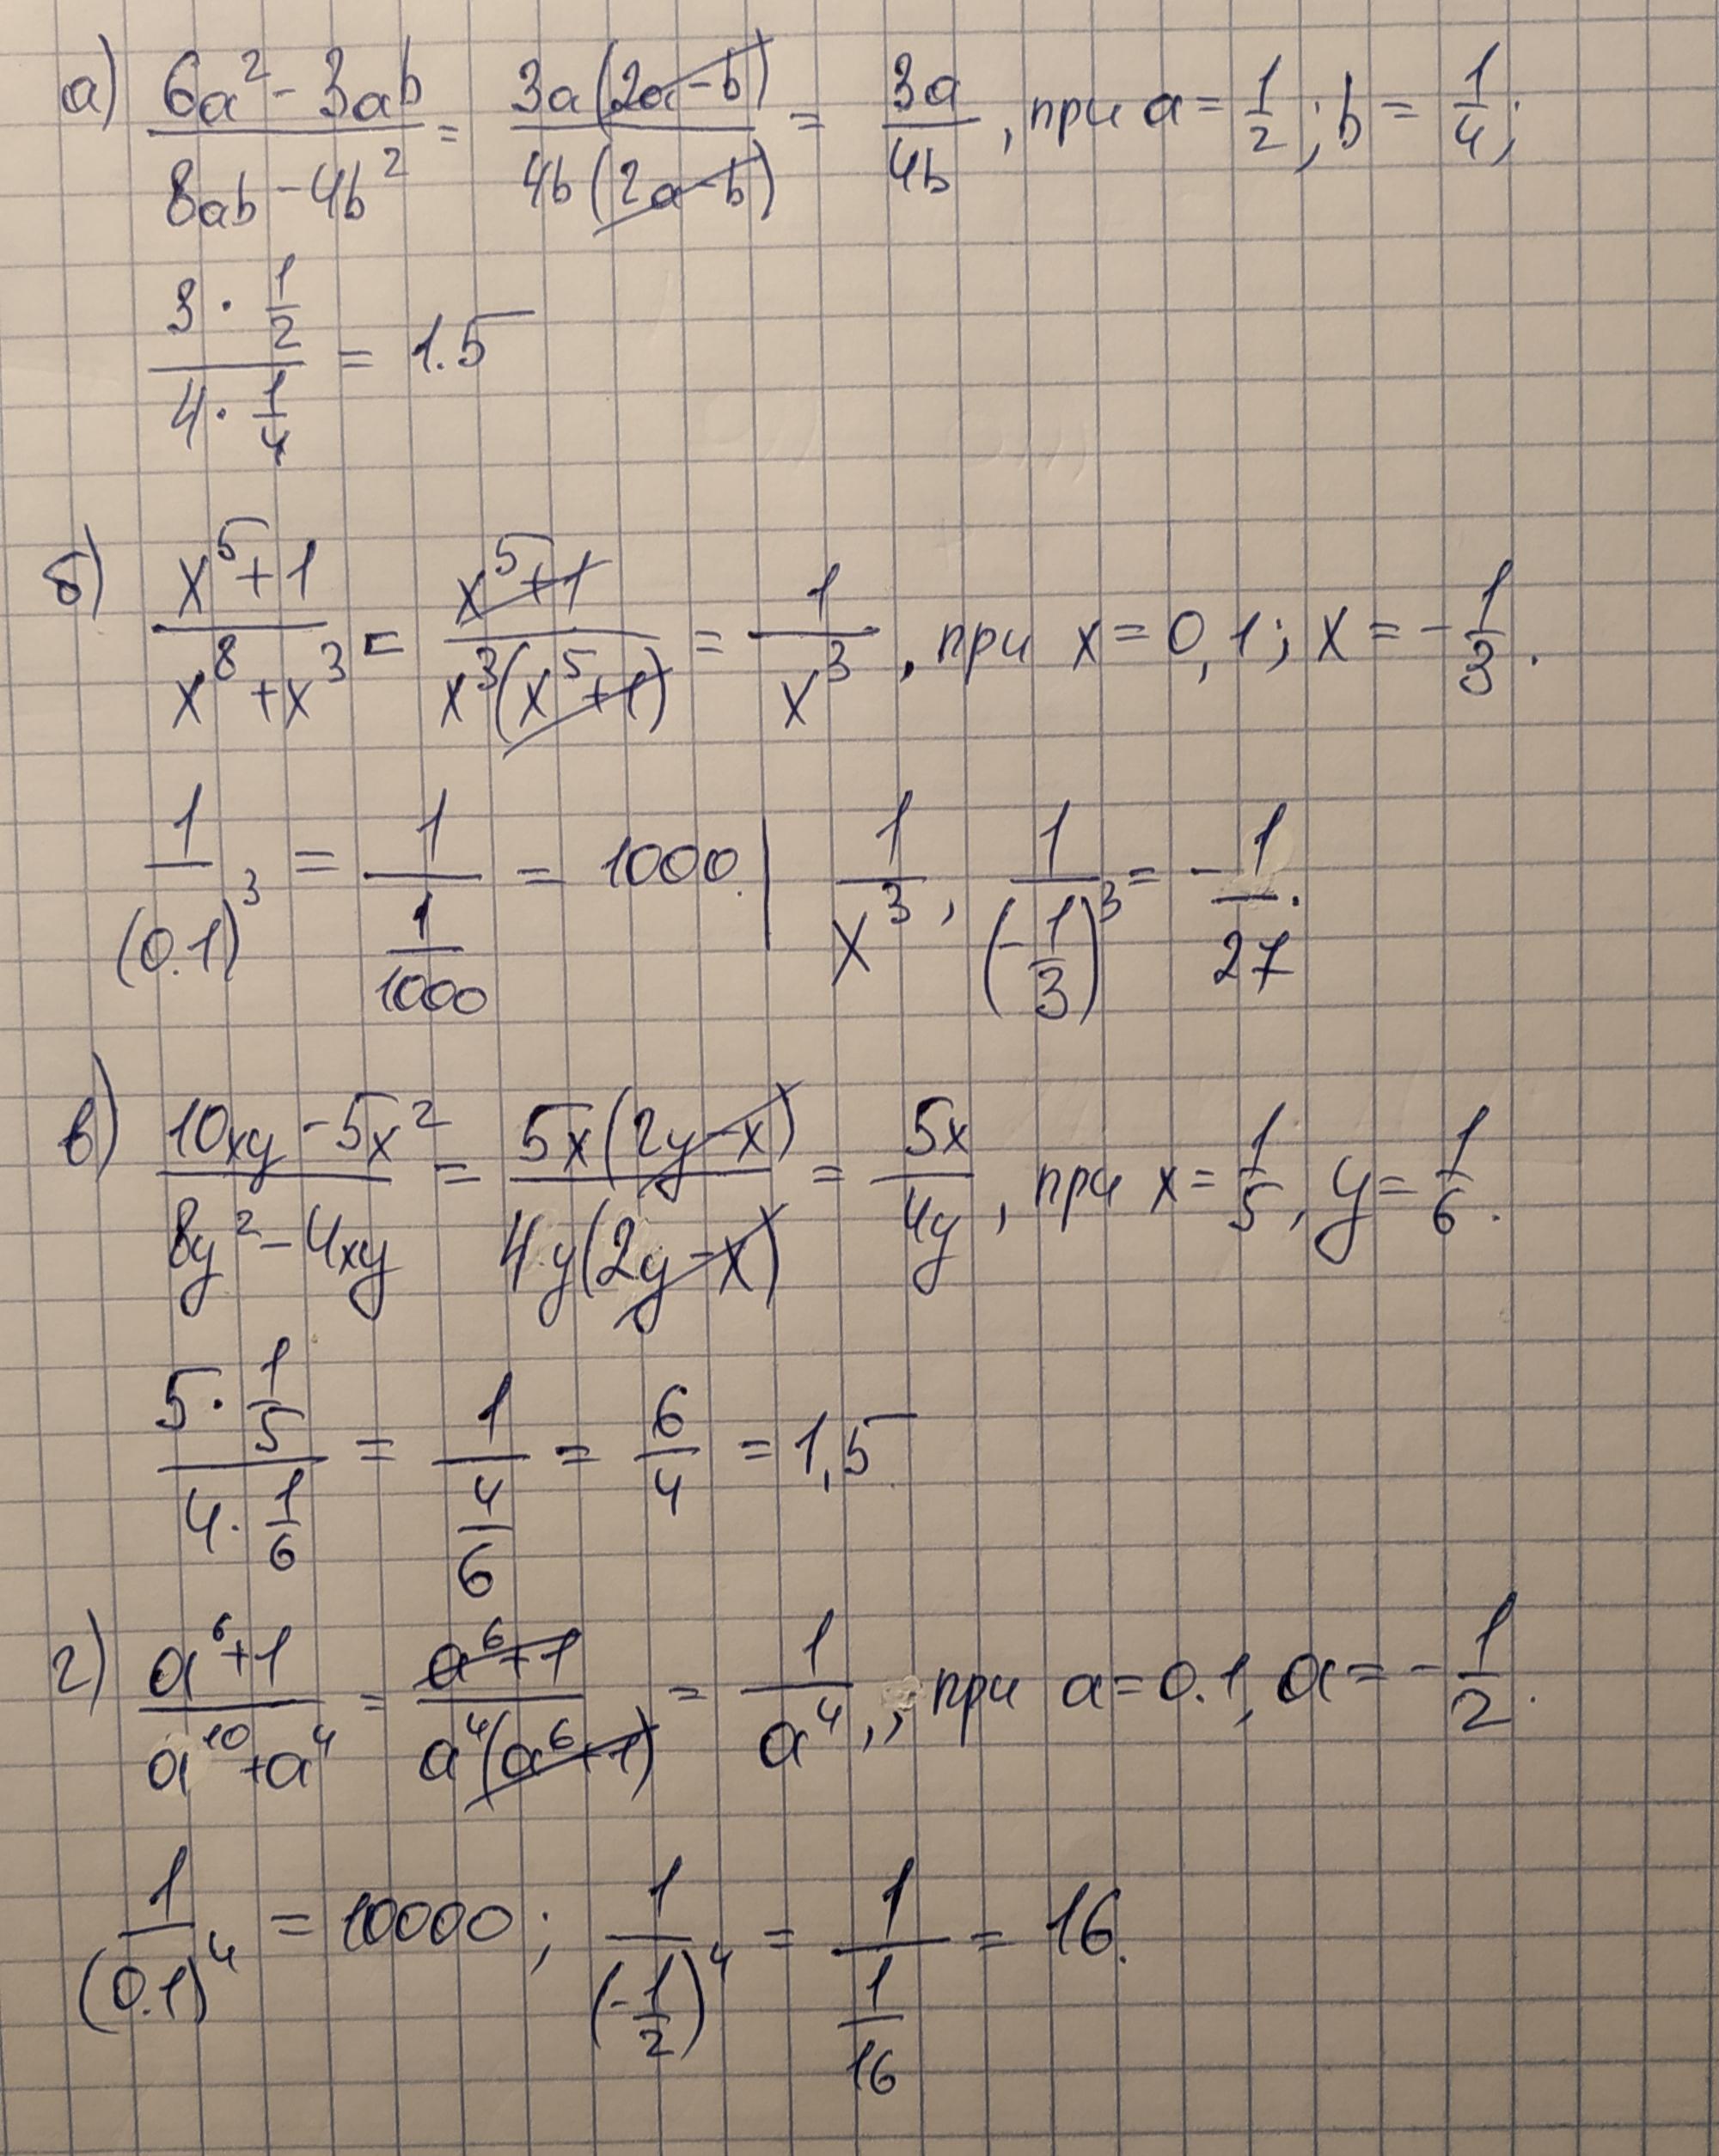 а) (6a² - 3ab)/(8ab - 4b²) = (3a(2a - b))/(4b(2a - b)) = 3a/4b, при a = 1/2; b = 1/4;
(3 · 1/2)/(4 · 1/4) = 1.5
б) (x⁵ + 1)/(x⁸ + x³) = (x⁵ + 1)/(x³(x⁵ + 1)) = 1/x³, при x = 0,1; x = -1/3.
1/(0.1)³ = 1/(1/1000) = 1000. | 1/x³, 1/(-1/3)³ = -1/27.
в) (10xy - 5x²)/(8y² - 4xy) = (5x(2y - x))/(4y(2y - x)) = 5x/4y, при x = 1/5, y = 1/6.
(5 · 1/5)/(4 · 1/6) = 1/(4/6) = 6/4 = 1,5.
г) (a⁶ + 1)/(a¹⁰ + a⁴) = (a⁶ + 1)/(a⁴(a⁶ + 1)) = 1/a⁴,; при a = 0.1, a = -1/2.
1/(0.1)⁴ = 10000; 1/(-1/2)⁴ = 1/(1/16) = 16.